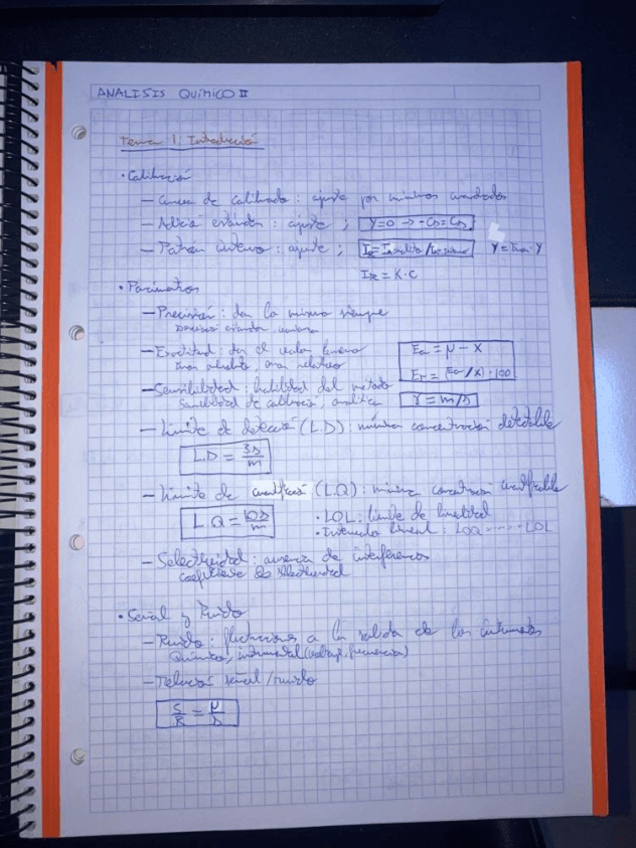 ANALISIS QUÍMICO II
Tema 1: Introducción
• Calibración
— Curva de calibrado: ajuste por mínimos cuadrados
— Adición estándar: ajuste ; Y=0 → -Cs=Cs
— Patron interno: ajuste ; IR = Ianalito/
IR = K·C
• Parámetros
— Precisión: dar lo mismo siempre
— Exactitud: dar el valor
Error absoluto, error relativo
Ea = μ - X
Er = (Ea/X)·100
— Sensibilidad: del método
Sensibilidad de calibración, analítica
γ = m/s
— Límite de detección (LD): mínima concentración detectable
LD = 3s/m
— Límite de cuantificación (LQ): mínima concentración cuantificable
LQ = 10s/m
• LOL: límite de linealidad
• Intervalo lineal: LOQ ------ LOL
— Selectividad: ausencia de interferencias
coeficiente de selectividad
• Señal y Ruido
— Ruido: fluctuaciones a la salida de los instrumentos
Químico, instrumental (voltaje, frecuencia)
— Relación señal/ruido
S/R = μ/s